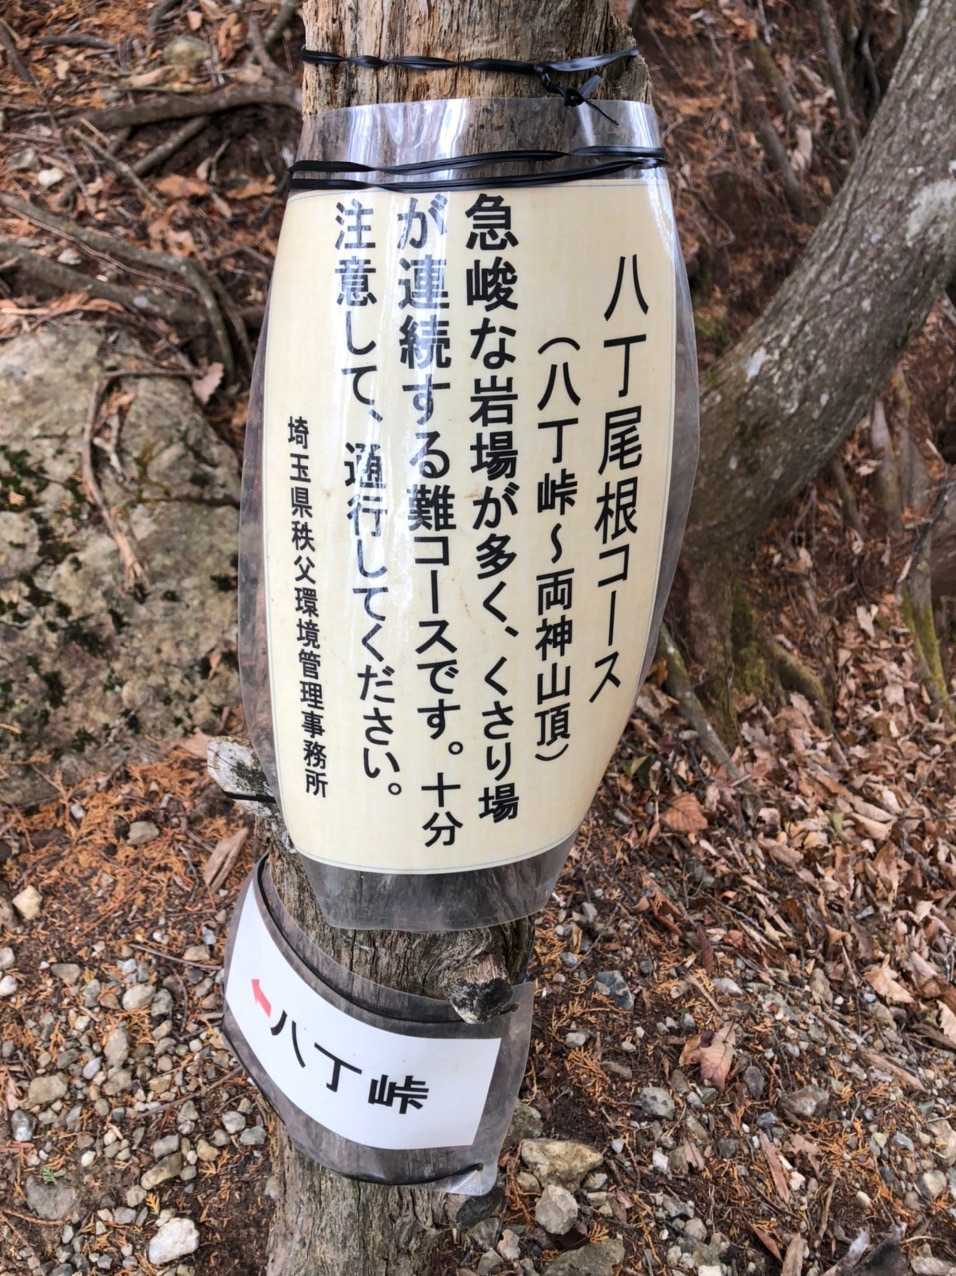 八丁尾根コース
（八丁峠～両神山頂）
急峻な岩場が多く、くさり場
が連続する難コースです。十分
注意して、通行してください。
埼玉県秩父環境管理事務所
八丁峠